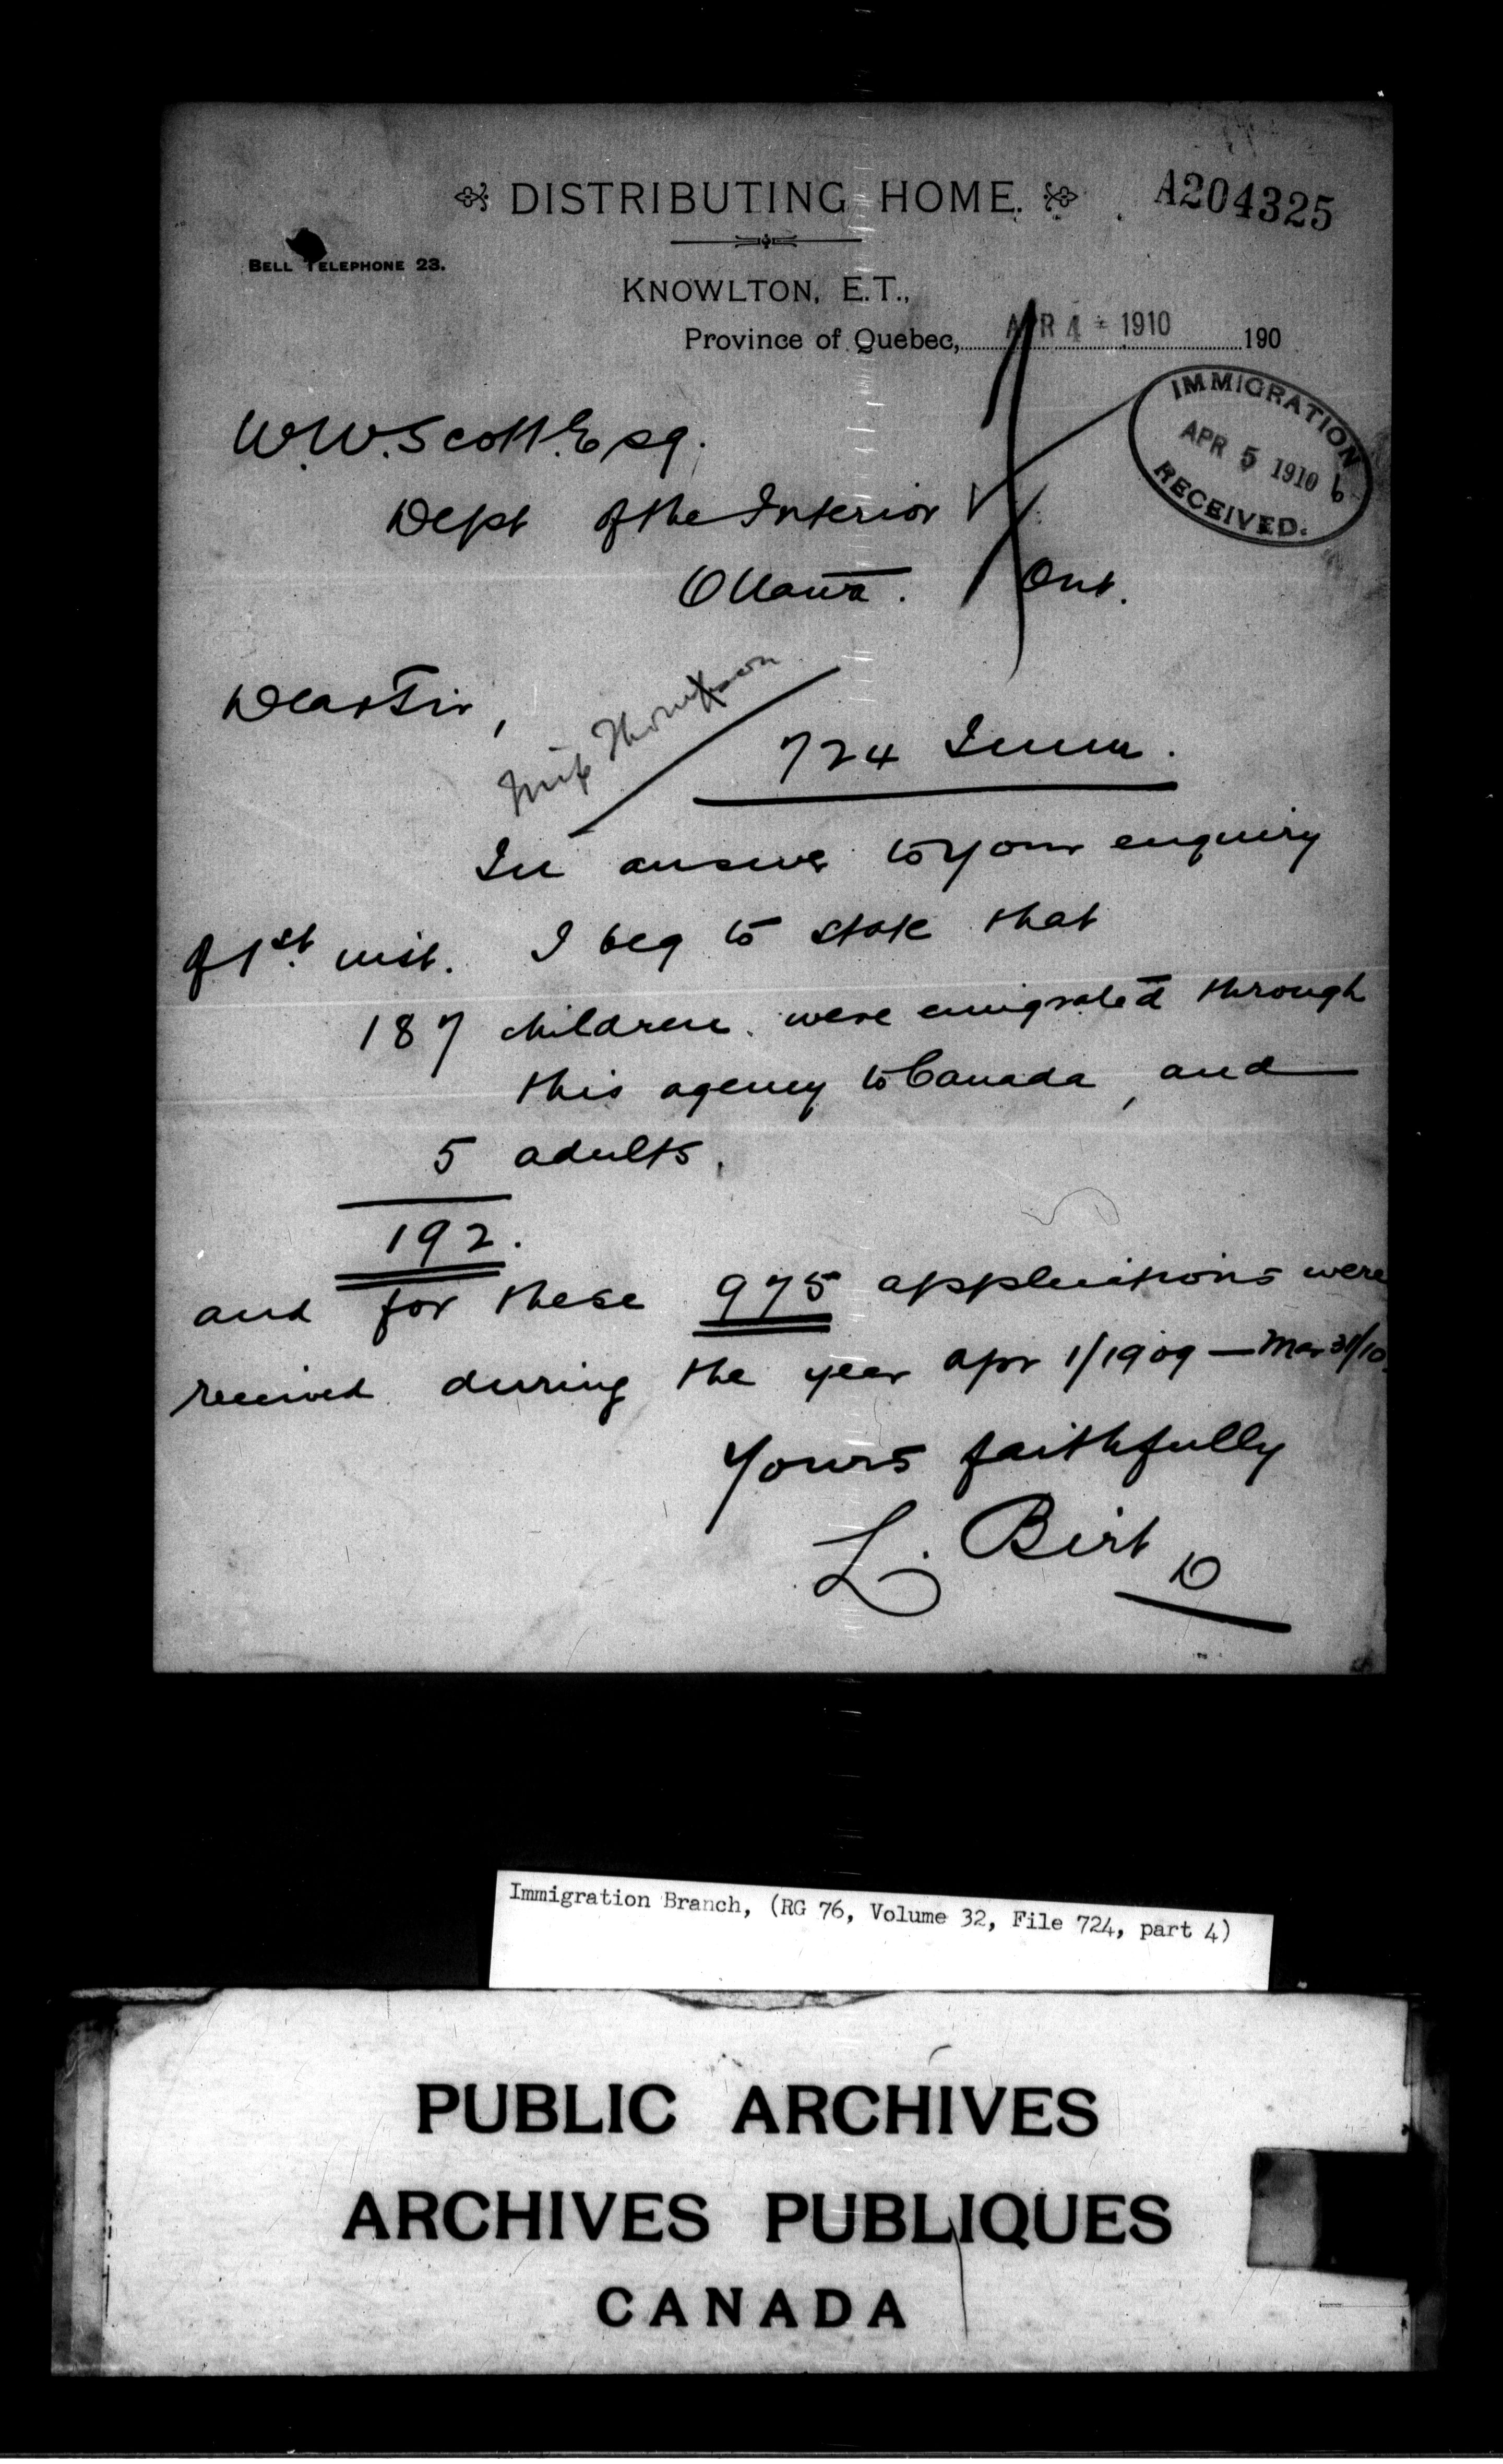 DISTRIBUTING HOME.
A204325
BELL TELEPHONE 23.
KNOWLTON, E.T.,
Province of Quebec, APR 4 - 1910 190
IMMIGRATION
APR 5 1910 6
RECEIVED.
W.W. Scott. Esq.
Dept of the Interior
Ottawa. Ont.
Dear Sir,
Miss Thompson
724 Imm.
In answer to your enquiry
of 1st. inst. I beg to state that
187 children were emigrated through
this agency to Canada, and
5 adults.
192.
and for these 975 applications were
received during the year Apr 1/1909 — Mar 31/10.
Yours faithfully
L. Birt
Immigration Branch, (RG 76, Volume 32, File 724, part 4)
PUBLIC ARCHIVES
ARCHIVES PUBLIQUES
CANADA